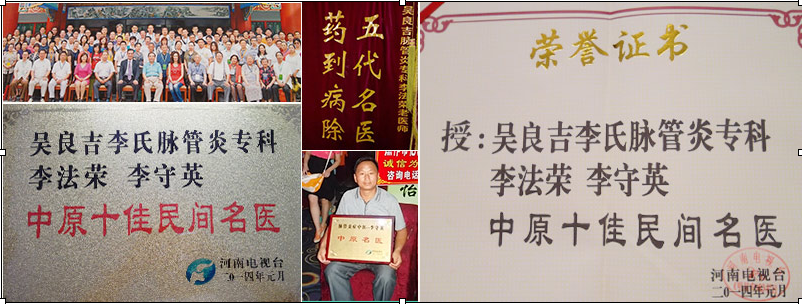 吴良吉李氏脉管炎专科
李法荣 李守英
中原十佳民间名医
河南电视台
二〇一四年元月
吴良吉脉管炎专科李法荣老医师
五代名医
药到病除
诚信为
咨询电话
怡
中原名医
荣誉证书
授:吴良吉李氏脉管炎专科
李法荣 李守英
中原十佳民间名医
河南电视台
二〇一四年元月